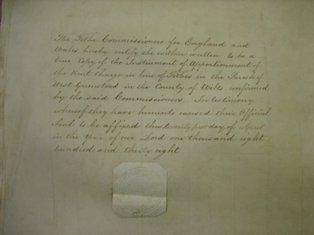 The Tithe Commissioners for England and
Wales hereby certify the within written to be a
true Copy of the Instrument of Apportionment of
the Rent charge in lieu of Tithes in the Parish of
West Grimstead in the County of Wilts confirmed
by the said Commissioners. In testimony
whereof they have hereunto caused their Official
Seal to be affixed this twenty first day of
in the Year of our Lord one thousand eight
hundred and thirty eight